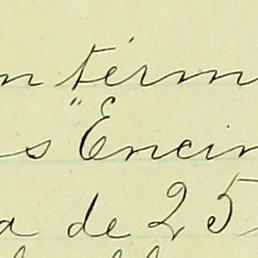 n térm
s "Encin
a de 25